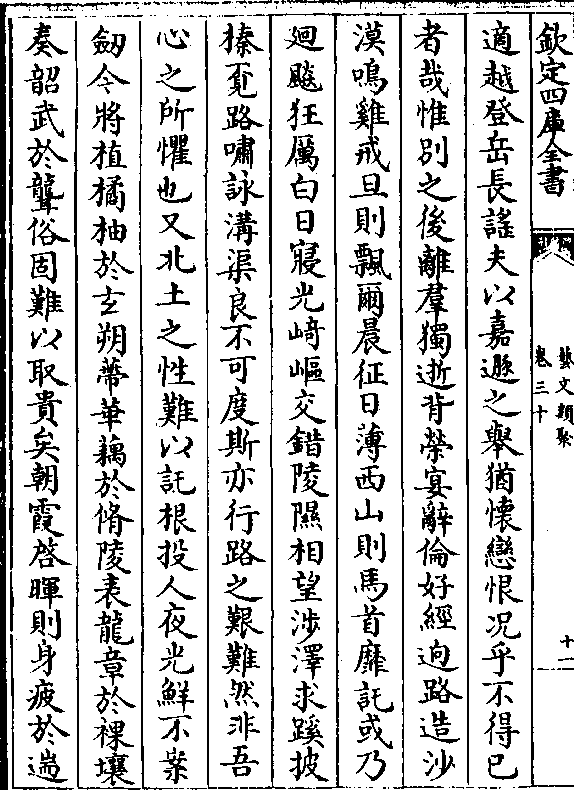 欽定四庫全書
藝文類聚
卷三十
十一
適越登岳長謠夫以嘉遯之舉猶懷戀恨况乎不得已
者哉惟别之後離羣獨逝背榮宴辭倫好經迥路造沙
漠鳴雞戒旦則飄爾晨征日薄西山則馬首靡託或乃
廻飈狂厲白日寢光﨑嶇交錯陵隰相望涉澤求蹊披
榛覓路嘯詠溝渠良不可度斯亦行路之艱難然非吾
心之所懼也又北土之性難以託根投人夜光鮮不案
劒今將植橘柚於玄朔蔕華藕於脩陵表龍章於裸壤
奏韶武於聾俗固難以取貴矣朝霞啓暉則身疲於遄